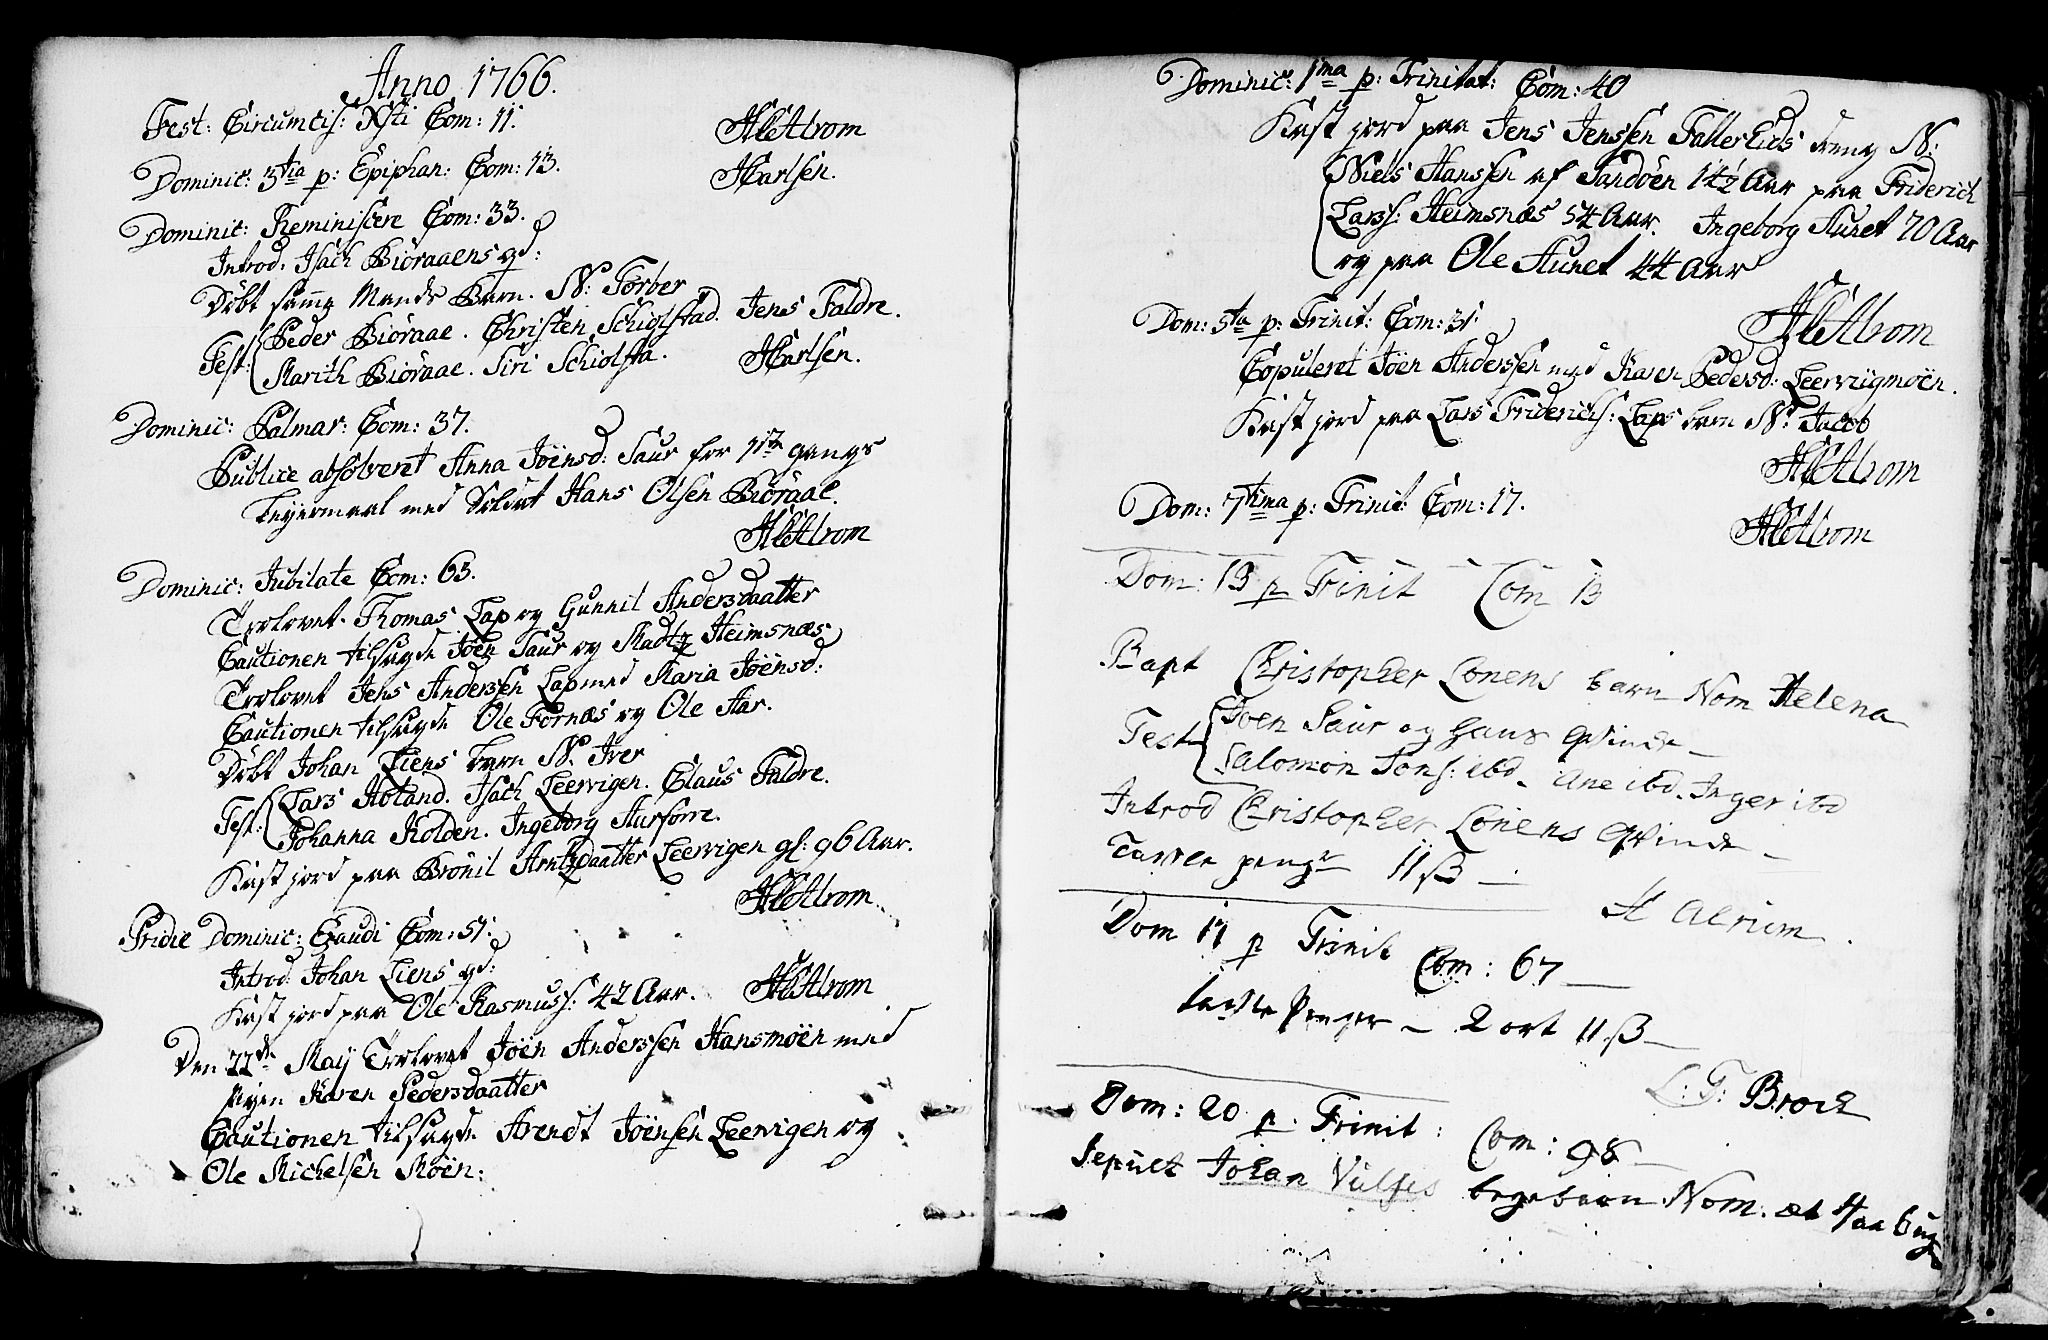 Anno 1766.
Fest: Circumcis: Xsti Com: 11.
Dominic: 3tia p: Epiphan: Com: 13.
Dominic: Reminiscere Com: 33.
Introd: Isach Biöraaens qd:
Döbt samme Mands Barn. N: Torber
Test: Peder Biöraae. Christen Schiolstad. Jens Faldre.
Marith Biöraae. Siri Schiolsta.
Dominic: Palmar: Com: 37.
Publice absolveret Anna Jöensd: Saur for 1ste gangs
Leyermaal med Soldat Hans Olsen Biöraae.
Dominic: Jubilate Com: 63.
Trolovet Thomas Lap og Gunnil Andersdaatter
Cautionen tilsagde Jöen Saur og Madtz Heimsnæs
Trolovet Jens Anderssen Lap med Maria Jöensd:
Cautionen tilsagde Ole Fornæs og Ole Aar.
Döbt Johan Liens barn N. Iver
Test: Lars Holand. Isach Leervigen. Claus Faldre.
Johanna Holden. Ingeborg Aursörre.
Kast jord paa Brönil Arntzdaatter Leervigen gl: 96 Aar.
Pridie Dominic: Exaudi Com: 51.
Introd: Johan Liens qd:
Kast jord paa Ole Rasmuss: 42 Aar.
Den 22de May Trolovet Jöen Anderssen Hansmöen med
Pigen Karen Pedersdaatter
Cautionen tilsagde Arendt Jöensen Leervigen og
Ole Michelsen Möen:
Dominic: 1ma p: Trinitat: Com: 40
Kast jord paa Jens Jenssen Fallerlids dreng N:
Niels Hanssen af Sandöen 14½ Aar paa Friderich
Larss: Heimsnæs 54 Aar. Ingeborg Auret 70 Aar
og paa Ole Auret 44 Aar
Dom: 5ta p: Trinit: Com: 31.
Copuleret Jöen Anderssen med Karen Pedersd: Leervigmöen.
Kast jord paa Lars Fridericks: Laps barn N: Jacob
Dom: 7tima p: Trinit: Com: 17.
Dom: 13 p Trinit Com 13
Bapt Christopher Lonens barn Nom Helena
Test Joen Saur og hans qvinde
Salomon Jons: ibd. Ane ibd. Inger ibd
Introd Christopher Lonens qvinde
Tavle penge 11 ß
Dom 17 p Trinit Com: 67
tavle Penger 2 ort 11 ß
L: T: Brock
Dom: 20 p. Trinit: Com: 98
Sepult Johan